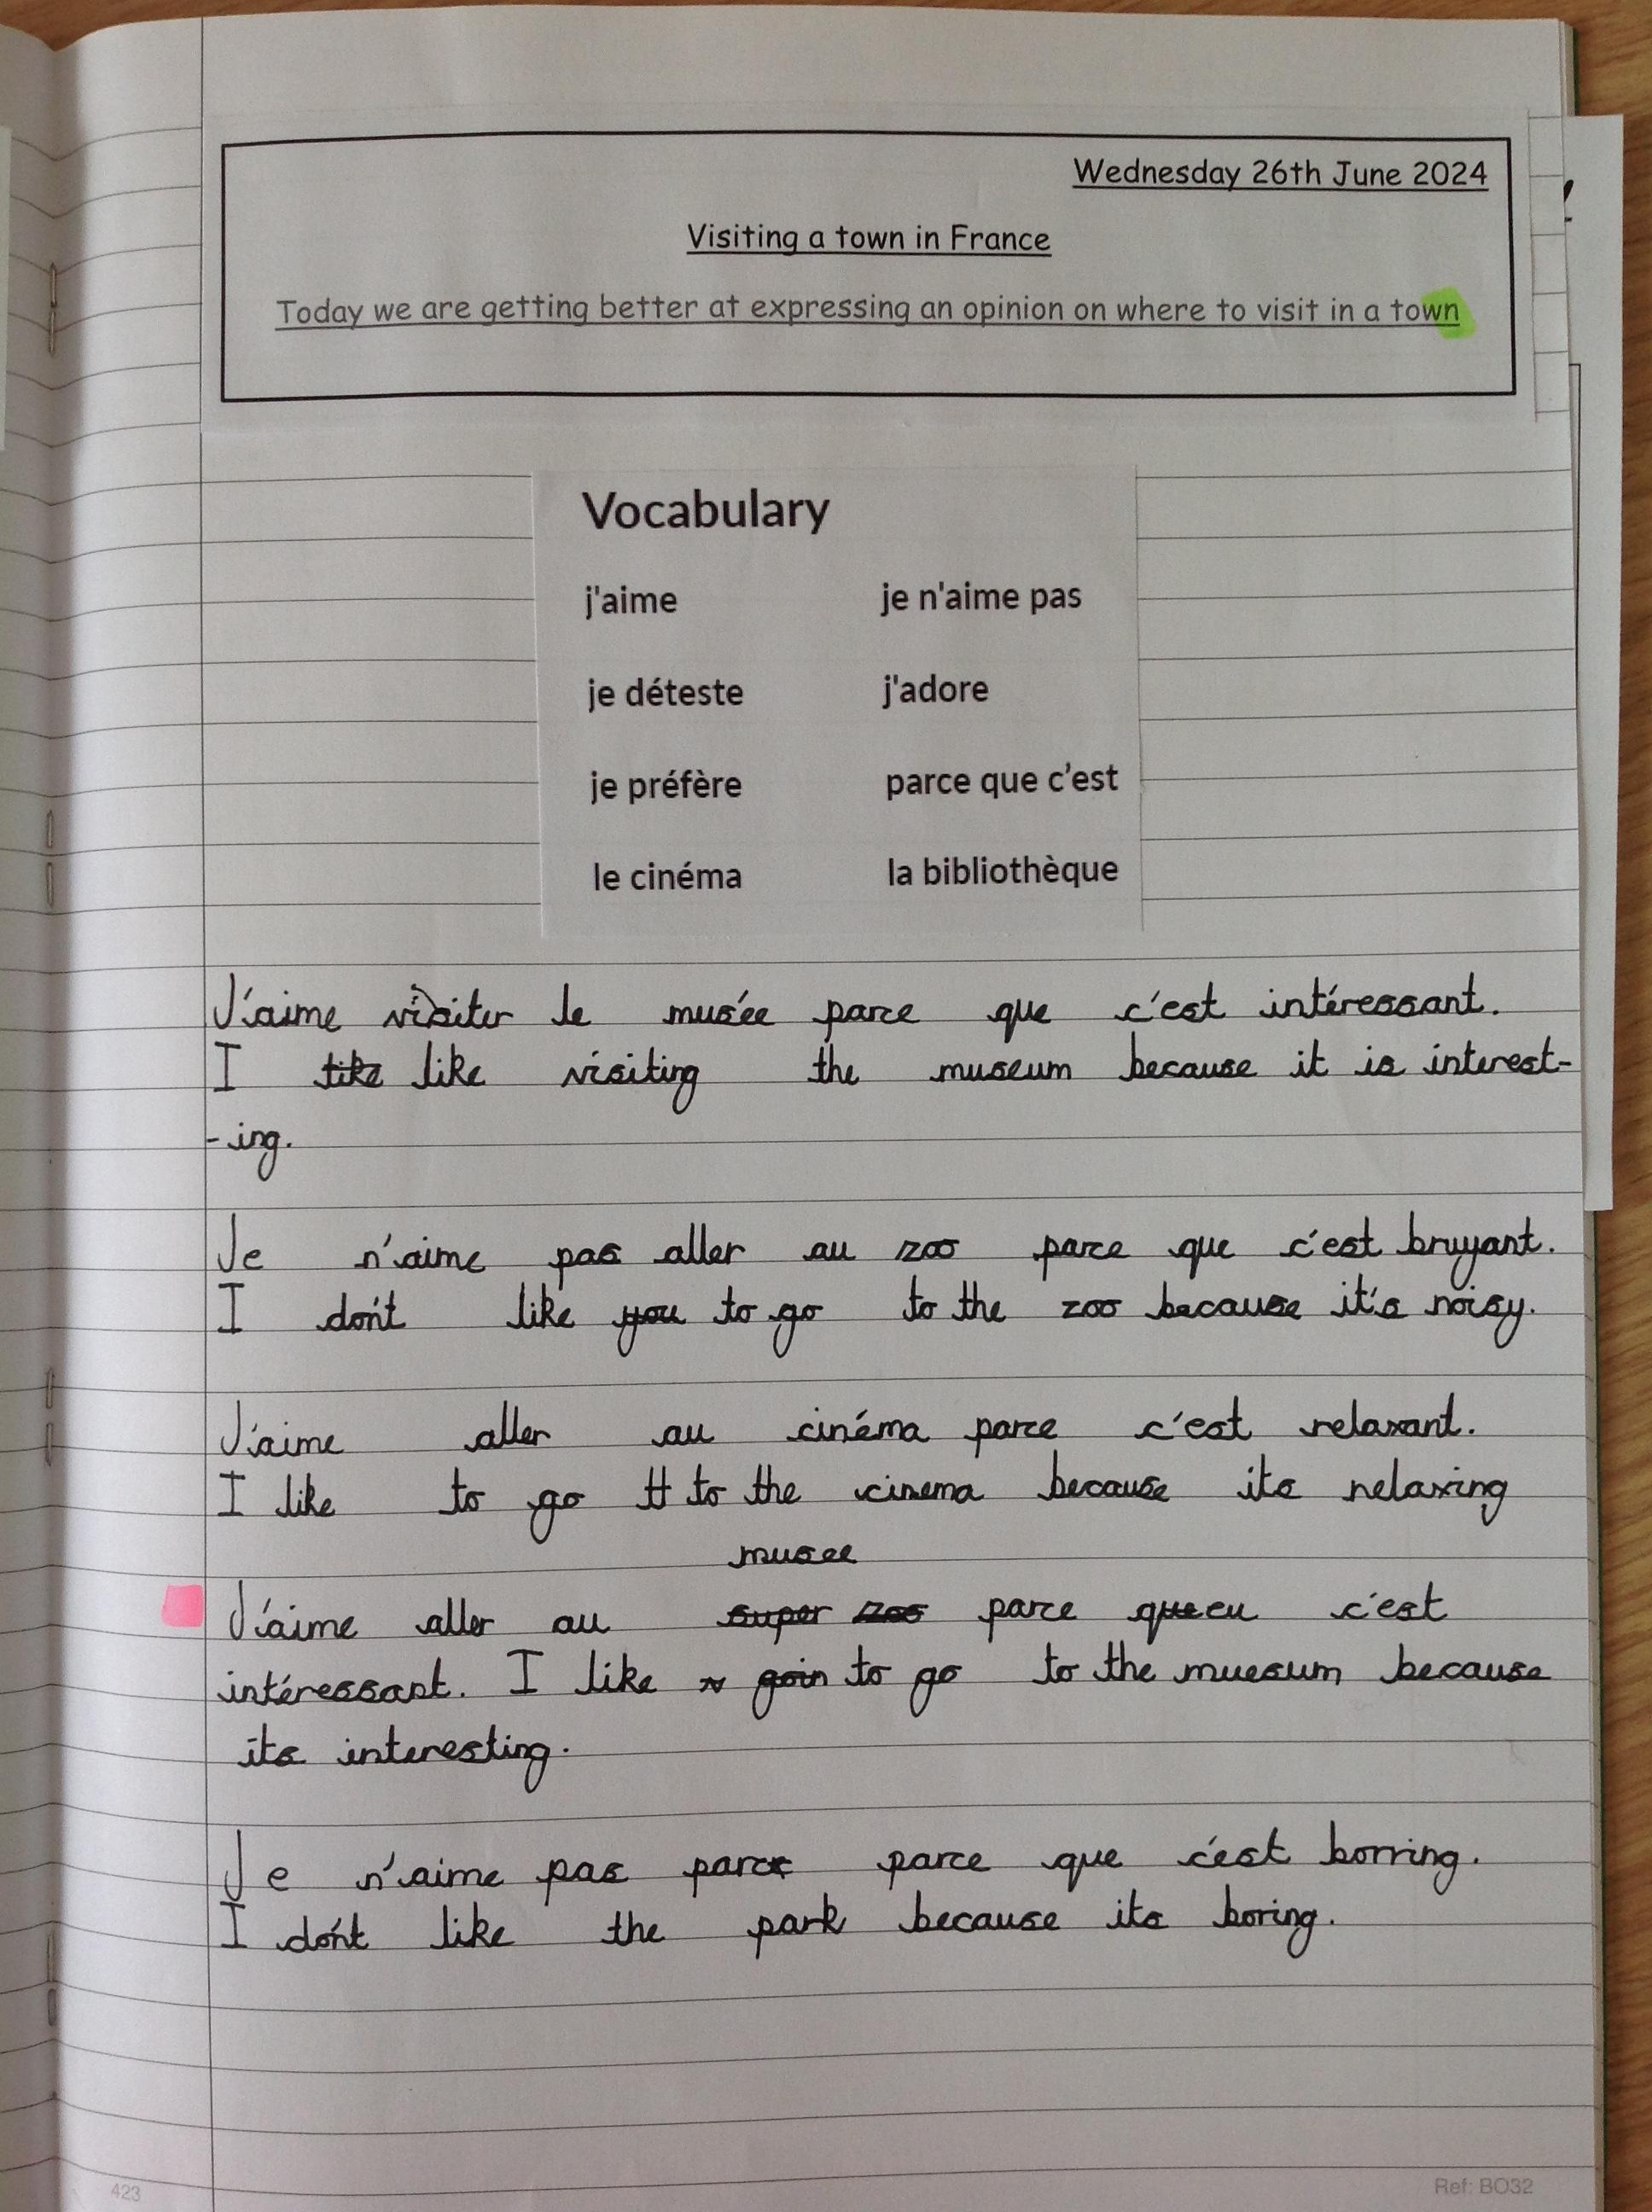 Wednesday 26th June 2024
Visiting a town in France
Today we are getting better at expressing an opinion on where to visit in a town
Vocabulary
j'aime je n'aime pas
je déteste j'adore
je préfère parce que c'est
le cinéma la bibliothèque
J'aime visiter le musée parce que c'est intéressant.
I like like visiting the museum because it is interest-
-ing.
Je n'aime pas aller au zoo parce que c'est bruyant.
I don't like you to go to the zoo because it's noisy.
J'aime aller au cinéma parce c'est relaxant.
I like to go tt to the cinema because its relaxing
musee
J'aime aller au super zoo parce queeu c'est
intéressant. I like goin to go to the muesum because
its interesting.
Je n'aime pas parc parce que c'est borring.
I don't like the park because its boring.
423 Ref: BO32